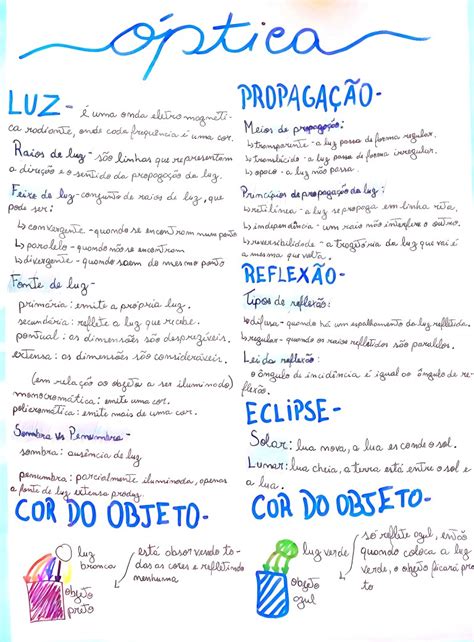 óptica
LUZ - é uma onda eletromagnéti-
ca radiante, onde cada frequência é uma cor.
Raios de luz - são linhas que representam
a direção e o sentido da propagação da luz.
Feixe de luz - conjunto de raios de luz, que
pode ser:
↳ convergente - quando se encontram num ponto
↳ paralelo - quando não se encontram
↳ divergente - quando saem do mesmo ponto
Fonte de luz -
primária: emite a própria luz.
secundária: reflete a luz que recebe.
pontual: as dimensões são desprezíveis.
extensa: as dimensões são consideráveis.
(em relação ao objeto a ser iluminado)
monocromática: emite uma cor.
policromática: emite mais de uma cor.
Sombra vs Penumbra -
sombra: ausência de luz
penumbra: parcialmente iluminada, apenas
a fonte de luz extensa produz.
COR DO OBJETO -
luz
branca
está absorvendo to-
das as cores e refletindo
nenhuma
objeto
preto
PROPAGAÇÃO -
Meios de propagação:
↳ transparente - a luz passa de forma regular.
↳ translúcido - a luz passa de forma irregular.
↳ opaco - a luz não passa.
Princípios de propagação da luz:
↳ retilínea - a luz se propaga em linha reta,
↳ independência - um raio não interfere o outro.
↳ reversibilidade - a trajetória da luz que vai é
a mesma que volta.
REFLEXÃO -
Tipos de reflexão:
↳ difusa - quando há um espalhamento da luz refletida.
↳ regular - quando os raios refletidos são paralelos.
Lei da reflexão:
o ângulo de incidência é igual ao ângulo de re-
flexão.
ECLIPSE -
Solar: lua nova, a lua esconde o sol.
Lunar: lua cheia, a terra está entre o sol e
a lua.
COR DO OBJETO -
luz verde
só reflete azul, então
quando coloca a luz
verde, o objeto ficará pre
to
objeto
azul